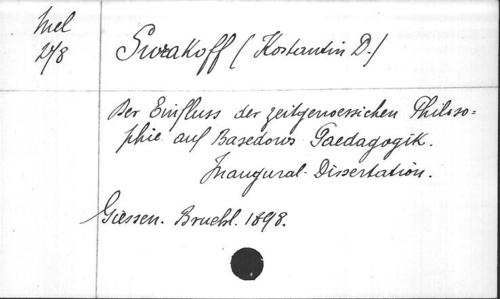 Mel
278
Swrakoff (Kostantin D.)
Der Einfluss der zeitgenoessichen Philoso=
phie auf Basedows Paedagogik.
Inaugural-Dissertation.
Giessen. Bruehl. 1898.